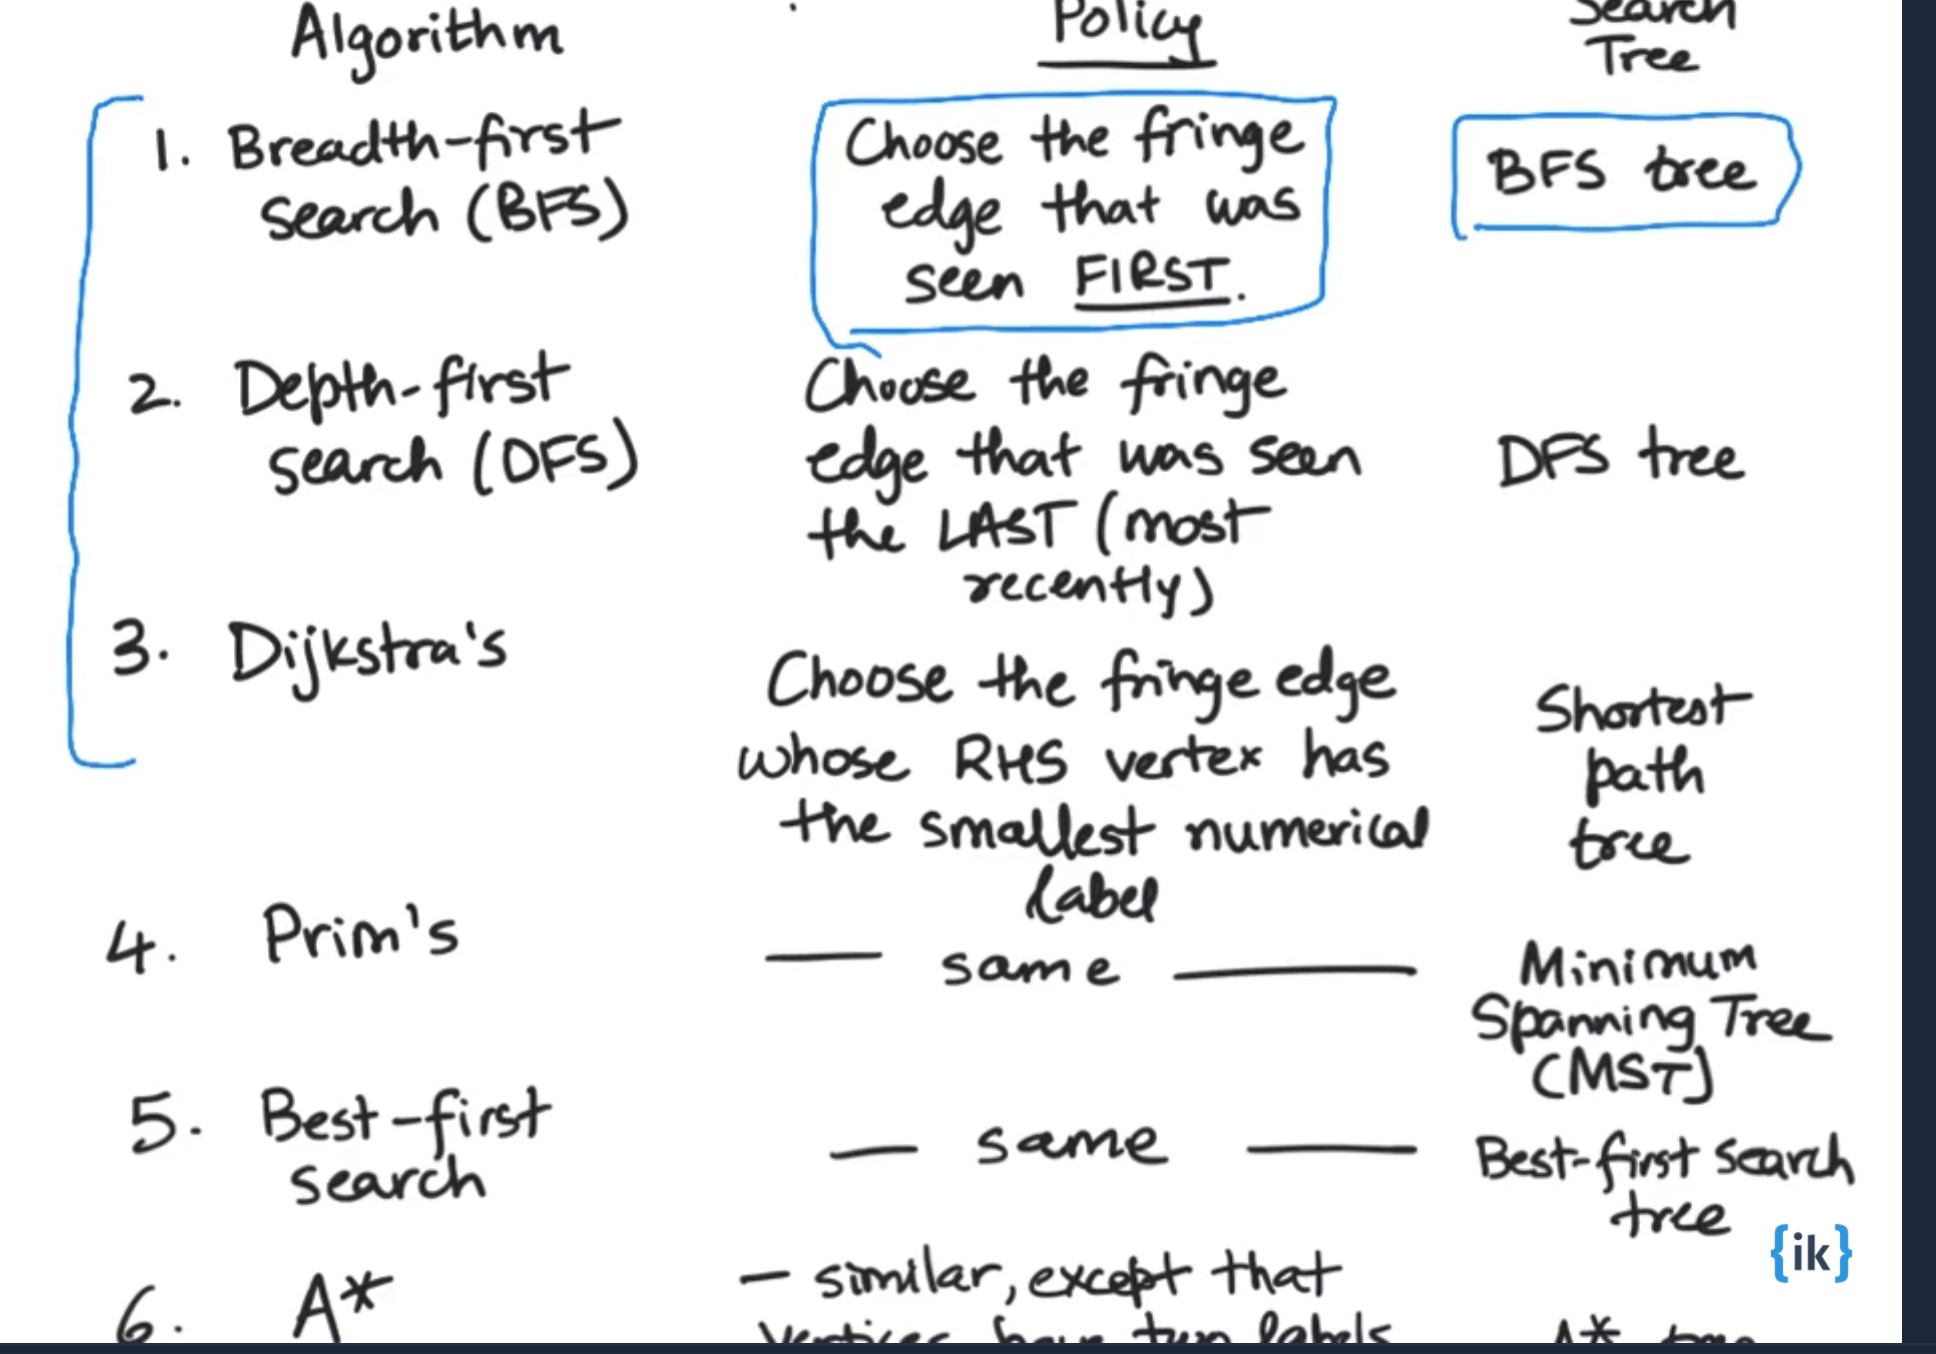 Algorithm
Policy
Search
Tree
1. Breadth-first
search (BFS)
Choose the fringe
edge that was
seen FIRST.
BFS tree
2. Depth-first
search (DFS)
Choose the fringe
edge that was seen
the LAST (most
recently)
DFS tree
3. Dijkstra's
Choose the fringe edge
whose RHS vertex has
the smallest numerical
label
Shortest
path
tree
4. Prim's
— same —
Minimum
Spanning Tree
(MST)
5. Best-first
search
— same —
Best-first search
tree
6. A*
- similar, except that
vertices have two labels
A* tree
{ik}